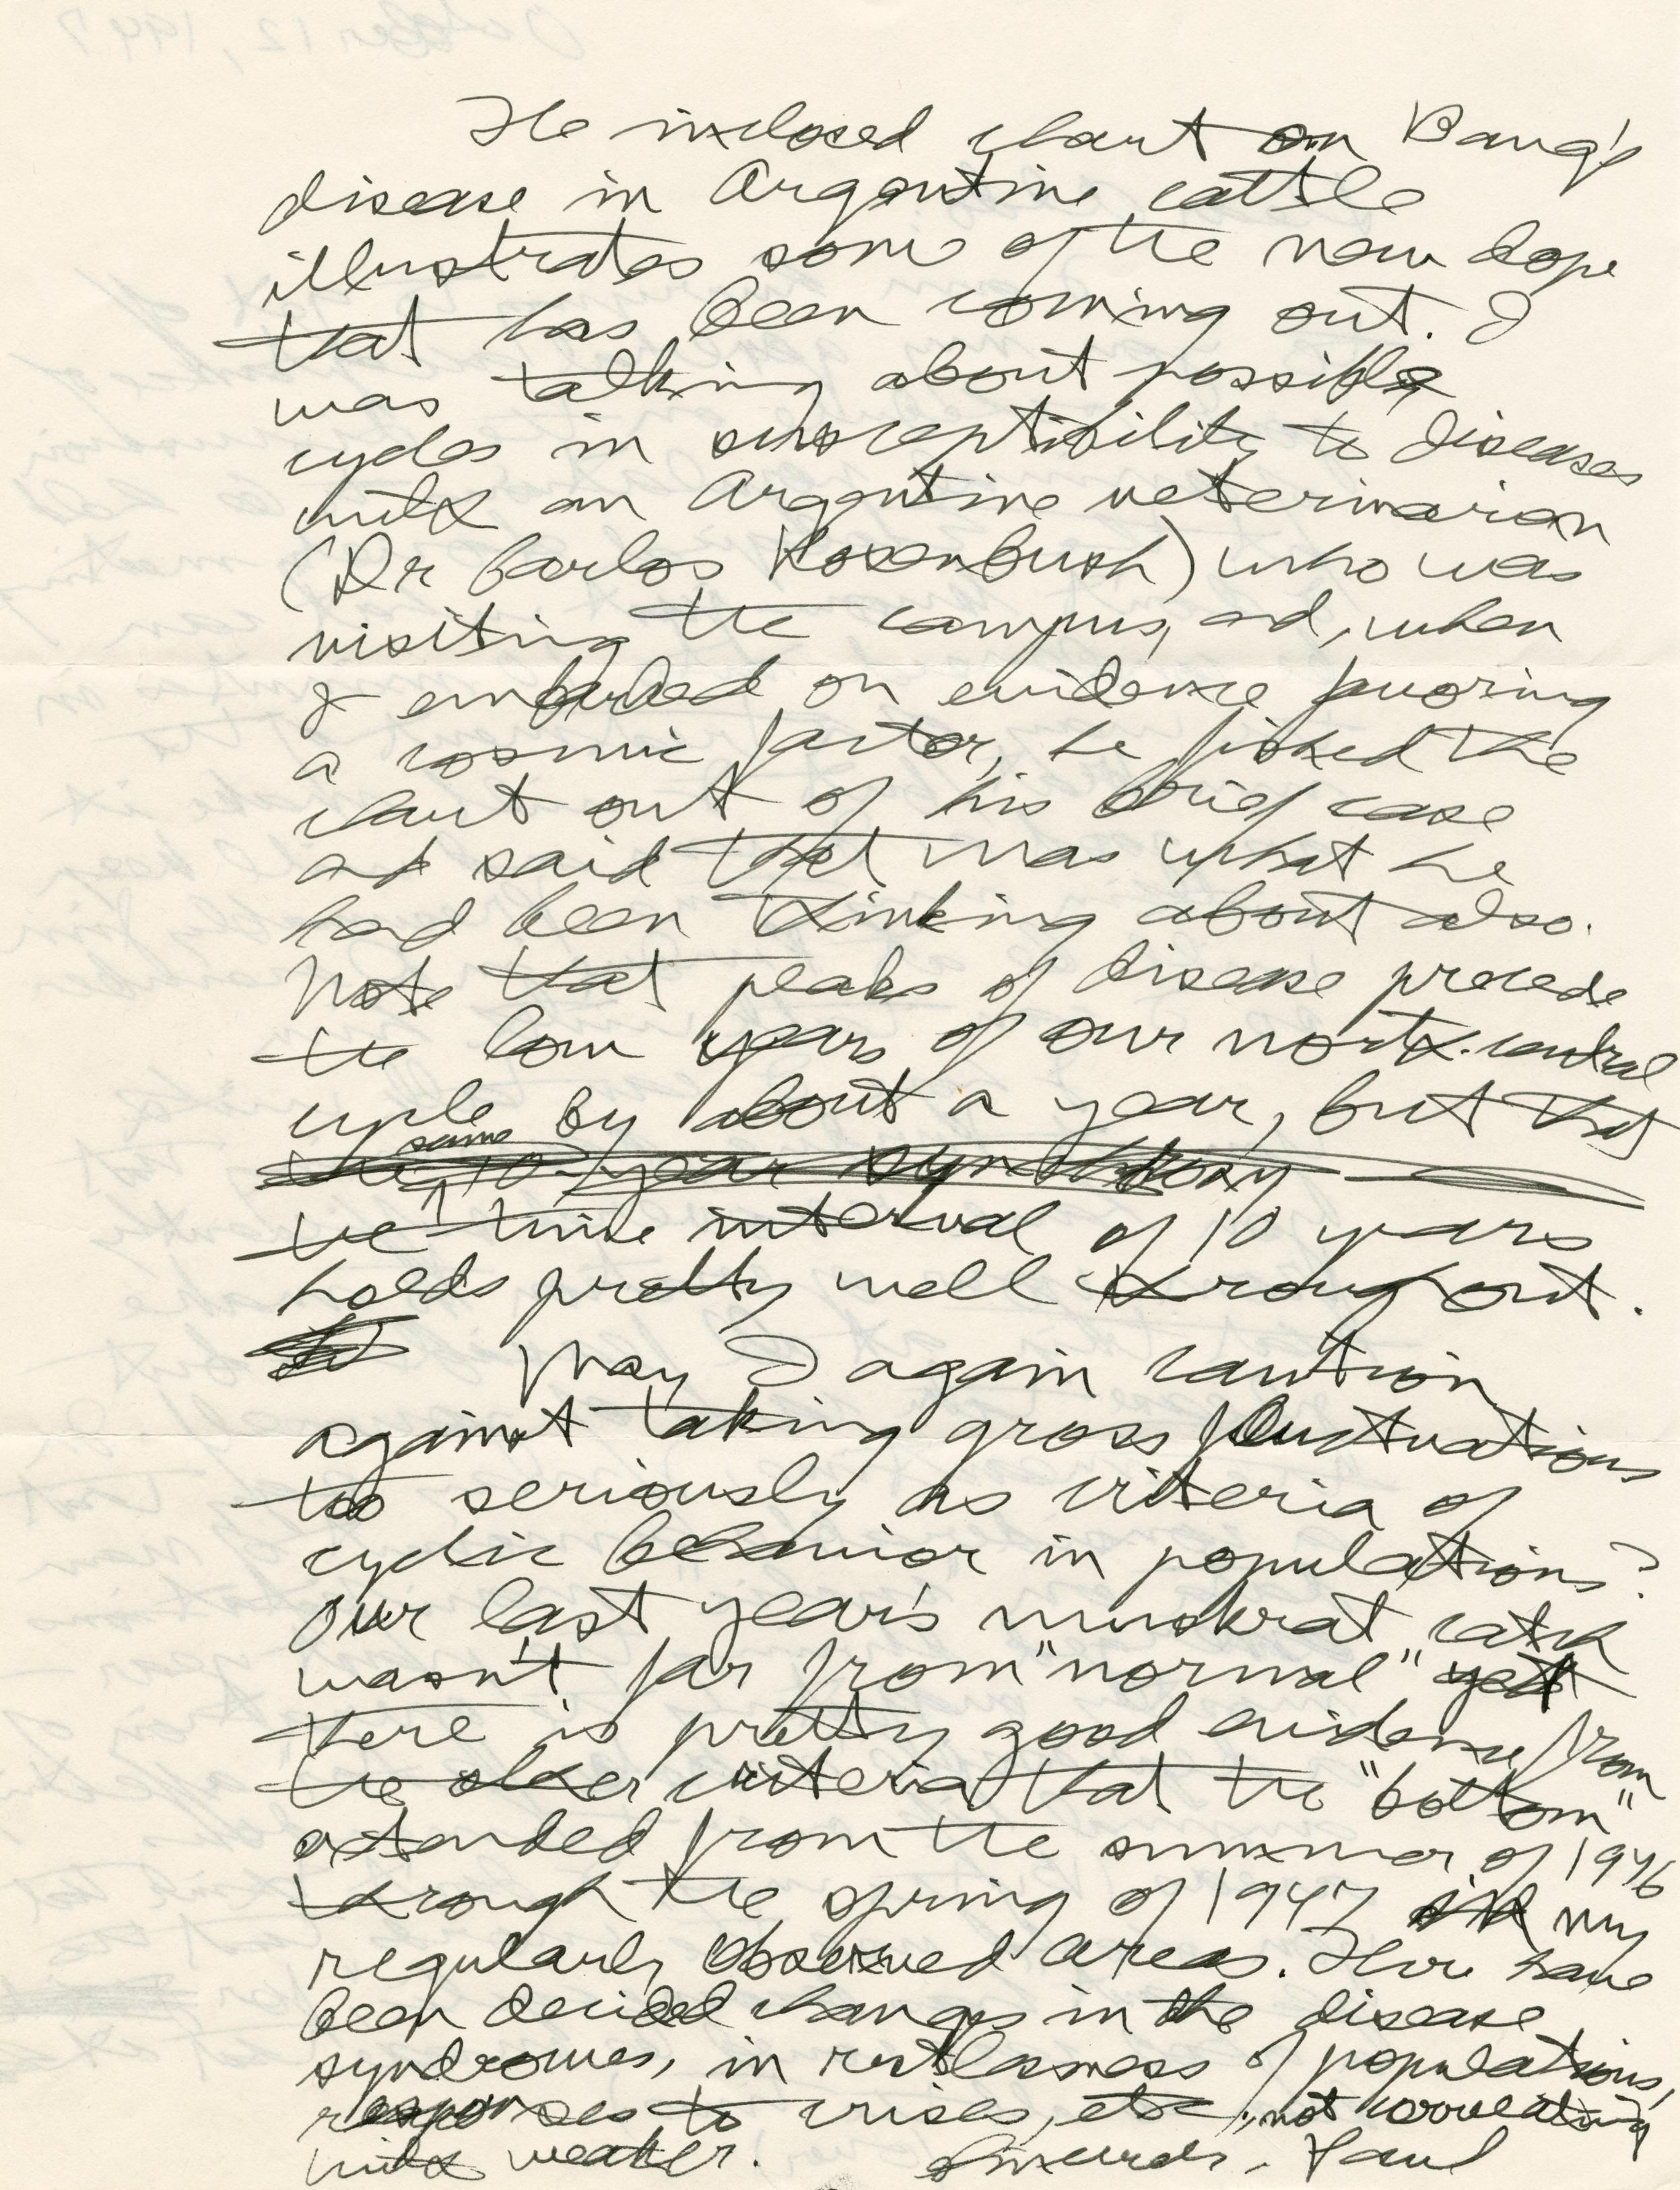 October 12, 1947
The inclosed chart on Bang's
disease in Argentine cattle
illustrates some of the new dope
that has been coming out. I
was talking about possible
cycles in susceptibility to diseases
with an Argentine veterinarian
(Dr Carlos Rosenbush) who was
visiting the campus, and, when
I embarked on evidence favoring
a cosmic factor, he fished the
chart out of his brief case
and said that was what he
had been thinking about also.
Note that peaks of disease precede
the low years of our north-central
cycle by about a year, but that
same
the 10-year synchrony
the time interval of 10 years
holds pretty well throughout.
May I again caution
against taking gross fluctuations
too seriously as criteria of
cyclic behavior in populations?
Our last year's muskrat catch
wasn't far from "normal" yet
there is pretty good evidence from
the other criteria that the "bottom"
extended from the summer of 1946
through the spring of 1947 in my
regularly observed areas. There have
been decided changes in the disease
syndromes, in restlessness of populations,
responses to crises, etc., not correlating
with weather. Sincerely, Paul